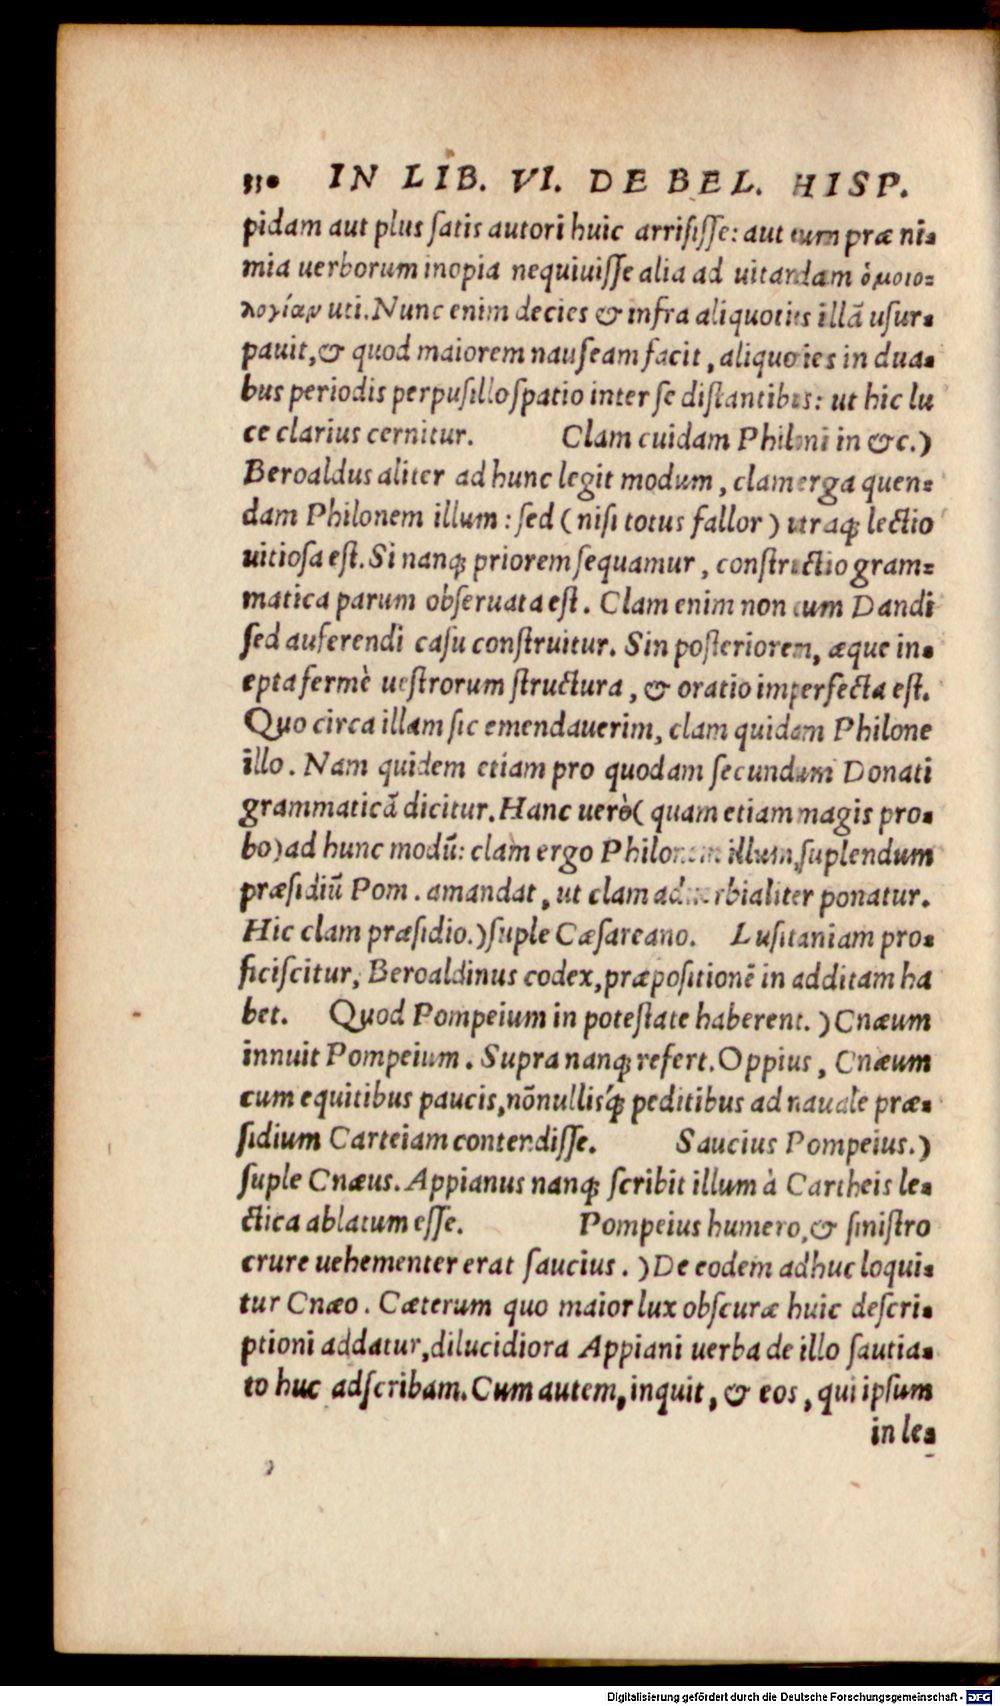 330 IN LIB. VI. DE BEL. HISP.
pidam aut plus ſatis autori huic arriſiſſe: aut eum præ ni-
mia uerborum inopia nequiuiſſe alia ad uitandam ὁμοιο-
λογίαν uti. Nunc enim decies & infra aliquoties illā uſur-
pauit, & quod maiorem nauſeam facit, aliquoties in dua-
bus periodis perpuſillo ſpatio inter ſe diſtantibus: ut hic lu
ce clarius cernitur. Clam cuidam Philoni in &c.)
Beroaldus aliter ad hunc legit modum, clam erga quen-
dam Philonem illum: ſed (niſi totus fallor) utraq; lectio
uitioſa eſt. Si nanq; priorem ſequamur, conſtructio gram-
matica parum obſeruata eſt. Clam enim non cum Dandi
ſed auferendi caſu conſtruitur. Sin poſteriorem, æque in-
epta fermè ueſtrorum ſtructura, & oratio imperfecta eſt.
Quo circa illam ſic emendauerim, clam quidam Philone
illo. Nam quidem etiam pro quodam ſecundum Donati
grammaticā dicitur. Hanc uerò (quam etiam magis pro-
bo) ad hunc modū: clam ergo Philonem illum, ſuplendum
præſidiū Pom. amandat, ut clam aduerbialiter ponatur.
Hic clam præſidio.) ſuple Cæſareano. Luſitaniam pro-
ficiſcitur, Beroaldinus codex, præpoſitionē in additam ha
bet. Quod Pompeium in poteſtate haberent.) Cnæum
innuit Pompeium. Supra nanq; refert. Oppius, Cnæum
cum equitibus paucis, nōnulliſq́; peditibus ad nauale præ-
ſidium Carteiam contendiſſe. Saucius Pompeius.)
ſuple Cnæus. Appianus nanq; ſcribit illum à Cartheis le-
ctica ablatum eſſe. Pompeius humero, & ſiniſtro
crure uehementer erat ſaucius.) De eodem adhuc loqui-
tur Cnæo. Cæterum quo maior lux obſcuræ huic deſcri-
ptioni addatur, dilucidiora Appiani uerba de illo ſautia-
to huc adſcribam. Cum autem, inquit, & eos, qui ipſum
in le-
Digitalisierung gefördert durch die Deutsche Forschungsgemeinschaft - DFG